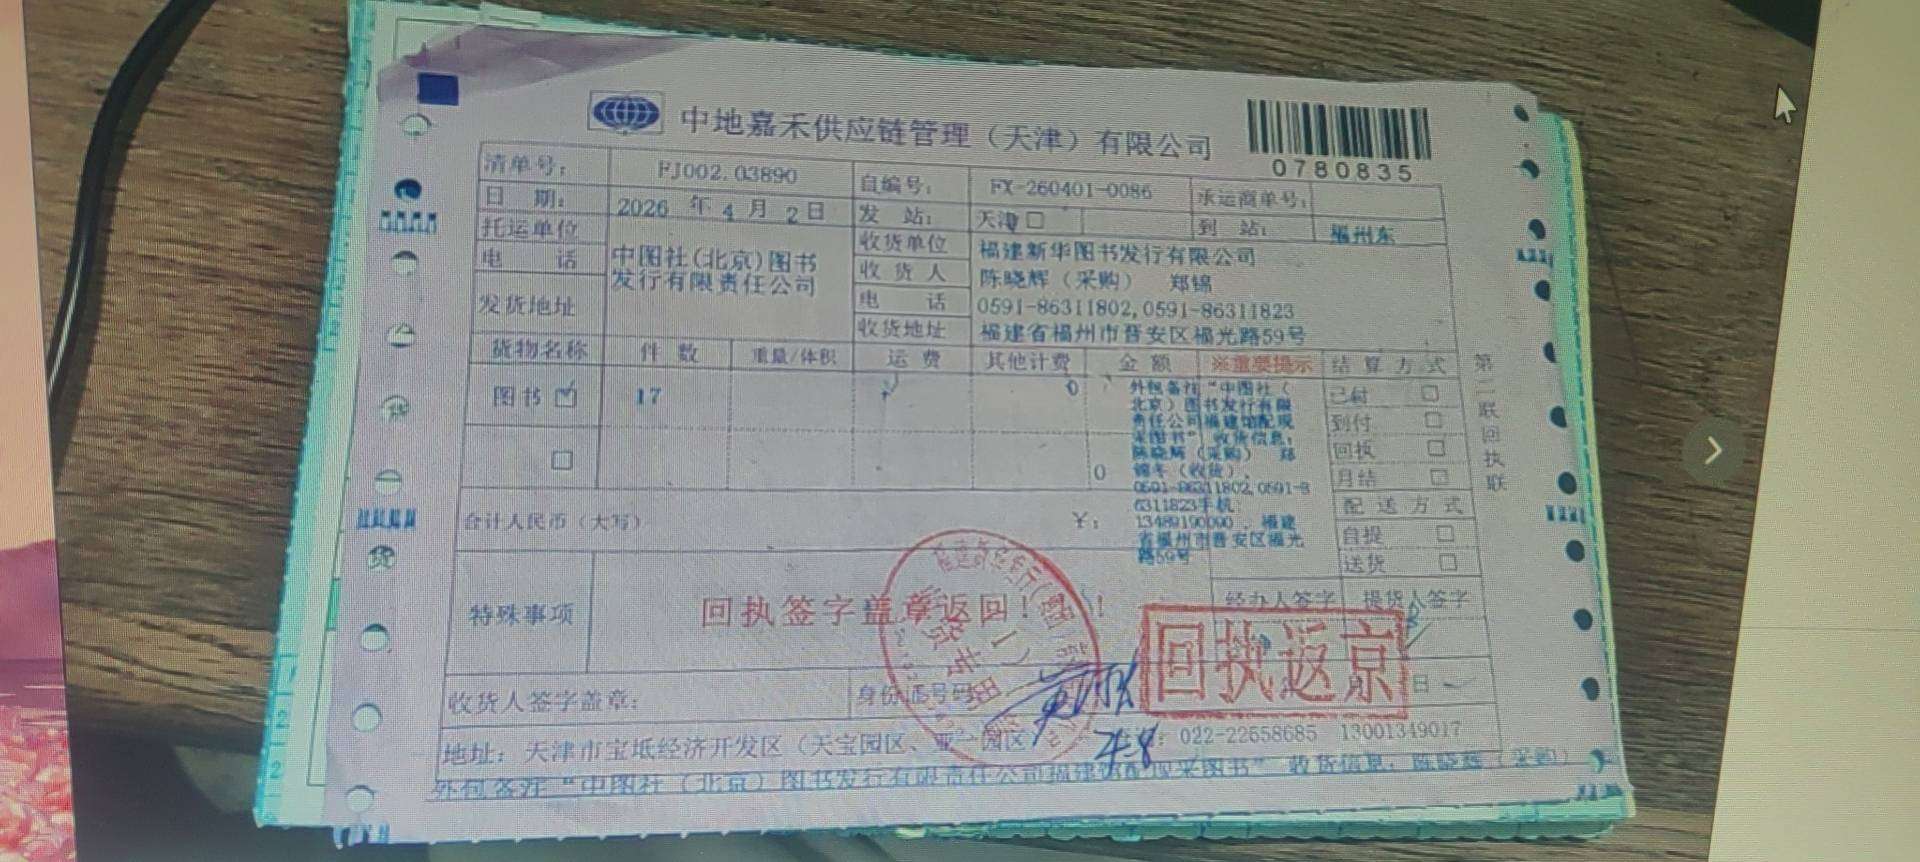 中地嘉禾供应链管理（天津）有限公司
0780835
清单号： FJ002.03890 自编号： FX-260401-0086 承运商单号：
日 期： 2026 年 4 月 2 日 发 站： 天津 到 站： 福州东
托运单位 中图社(北京)图书发行有限责任公司 收货单位 福建新华图书发行有限公司
电 话 收 货 人 陈晓辉（采购） 郑锦
发货地址 电 话 0591-86311802,0591-86311823
收货地址 福建省福州市晋安区福光路59号
货物名称 件 数 重量/体积 运 费 其他计费 金 额 ※重要提示 结 算 方 式
图书 17 0
0
外包备注"中图社（
北京）图书发行有限
责任公司福建馆配现
采图书" 收货信息：
陈晓辉（采购） 郑
锦冬（收货）、
0591-86311802,0591-8
6311823手机：
13489190090 、福建
省福州市晋安区福光
路59号
已付
到付
回执
月结
配 送 方 式
自提
送货
第二联回执联
合计人民币（大写） ￥：
特殊事项 回执签字盖章返回！！！
经办人签字 提货人签字
回执返京
收货人签字盖章： 身份证号码 日
4.8
地址：天津市宝坻经济开发区（天宝园区、 园区 ：022-22658685 13001349017
外包备注"中图社（北京）图书发行有限责任公司福建馆配现采图书" 收货信息：陈晓辉（采购）